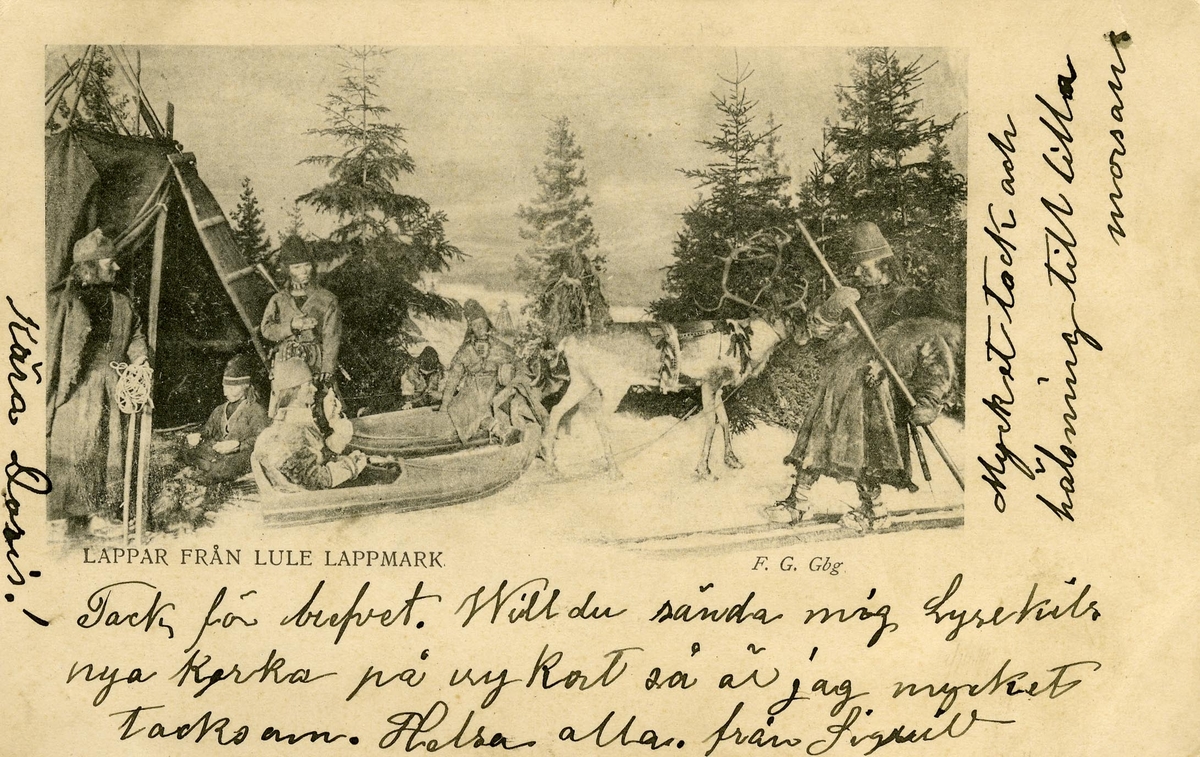 Kära Doris!
LAPPAR FRÅN LULE LAPPMARK.
F. G. Gbg.
Tack för brefvet. Will du sända mig Lysekils
nya kyrka på vykort så är jag mycket
tacksam. Helsa alla. från Sigrid
Mycket tack och
hälsning till lilla
morsans